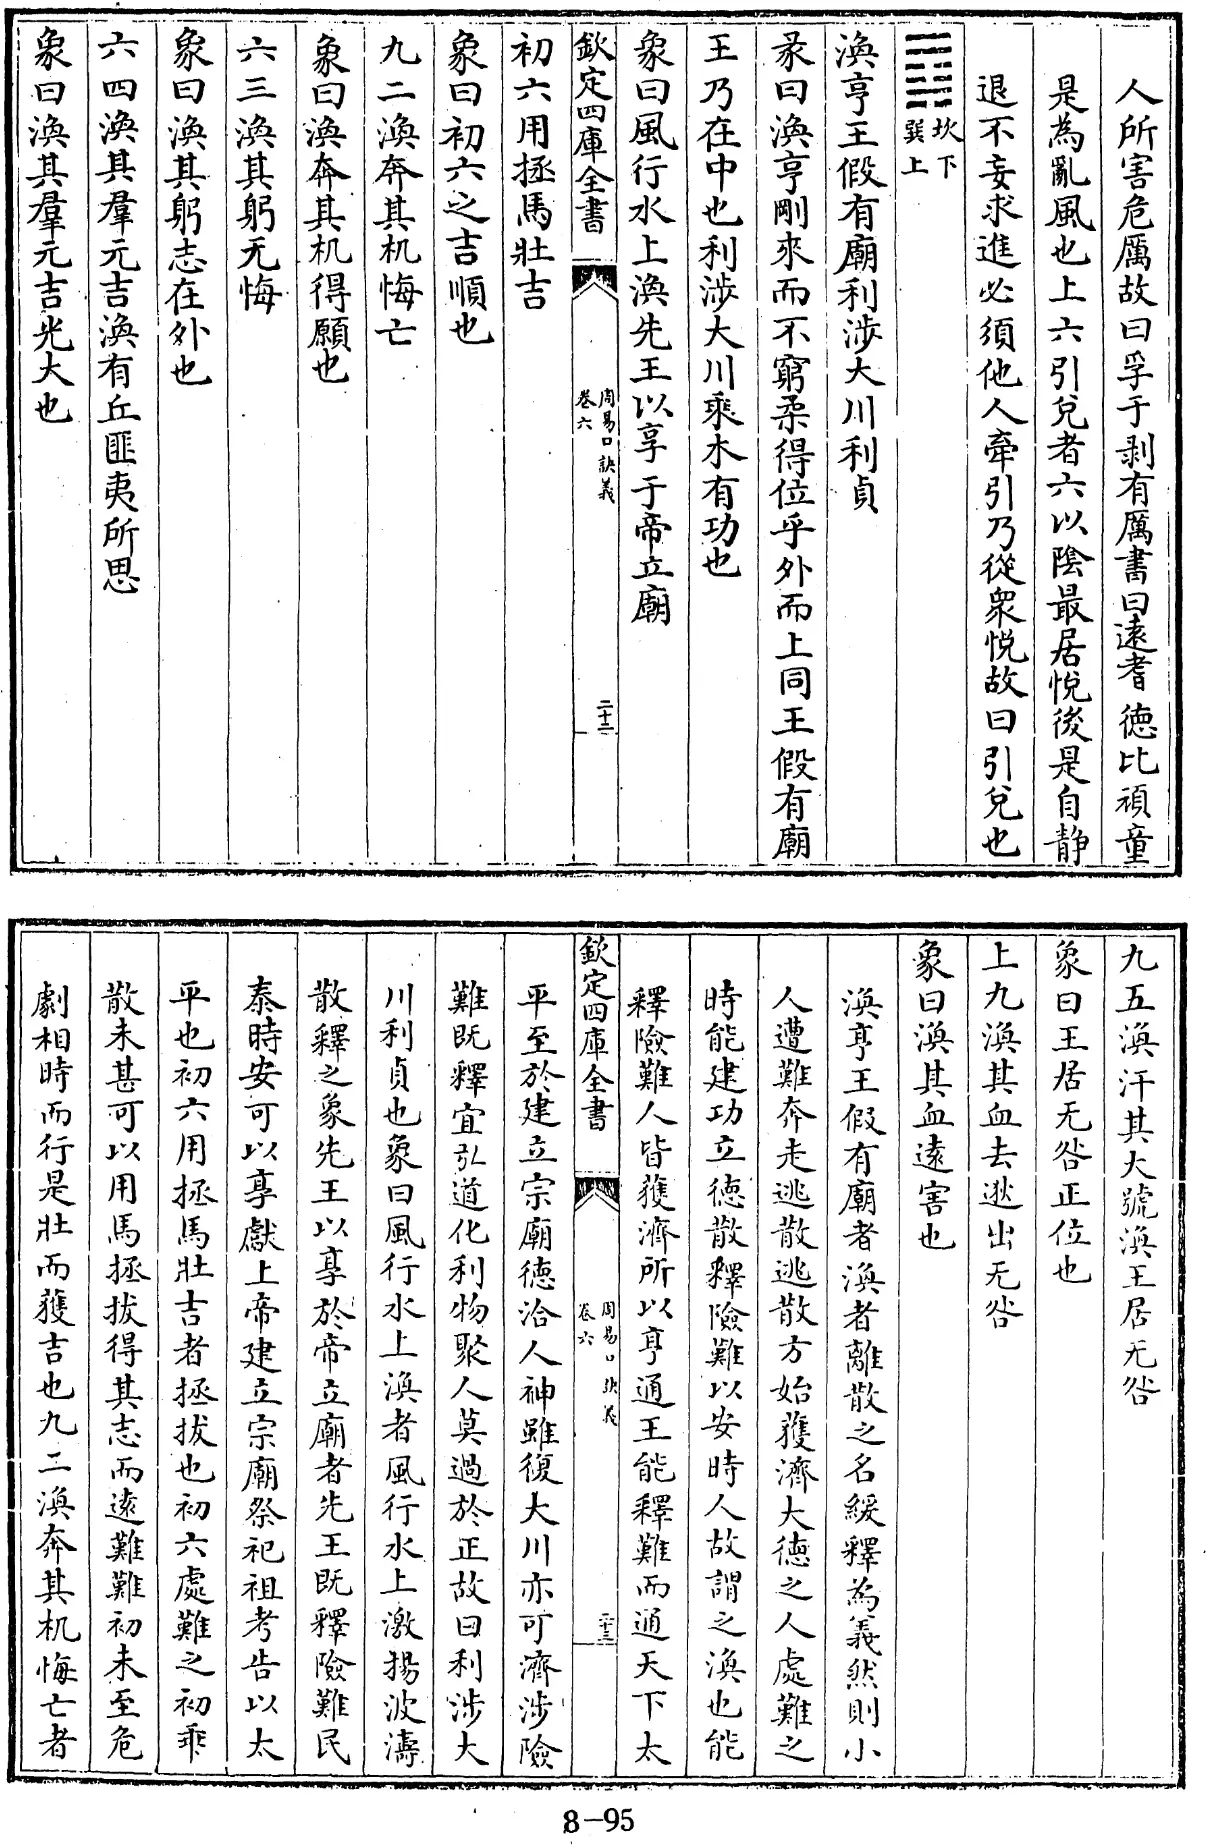 人所害危厲故曰孚于剥有厲書曰遠耆德比頑童
是為亂風也上六引兌者六以陰最居恱後是自静
退不妄求進必須他人牽引乃從衆恱故曰引兌也
坎下
巽上
渙亨王假有廟利涉大川利貞
彖曰渙亨剛來而不窮柔得位乎外而上同王假有廟
王乃在中也利涉大川乘木有功也
象曰風行水上渙先王以享于帝立廟
欽定四庫全書
周易口訣義
卷六
二十二
初六用拯馬壯吉
象曰初六之吉順也
九二渙奔其机悔亡
象曰渙奔其机得願也
六三渙其躬无悔
象曰渙其躬志在外也
六四渙其羣元吉渙有丘匪夷所思
象曰渙其羣元吉光大也
九五渙汗其大號渙王居无咎
象曰王居无咎正位也
上九渙其血去逖出无咎
象曰渙其血遠害也
渙亨王假有廟者渙者離散之名緩釋為義然則小
人遭難奔走逃散逃散方始獲濟大德之人處難之
時能建功立德散釋險難以安時人故謂之渙也能
釋險難人皆獲濟所以亨通王能釋難而通天下太
欽定四庫全書
周易口訣義
卷六
二十三
平至於建立宗廟德洽人神雖復大川亦可濟涉險
難既釋宜弘道化利物聚人莫過於正故曰利涉大
川利貞也象曰風行水上渙者風行水上激揚波濤
散釋之象先王以享於帝立廟者先王既釋險難民
泰時安可以享獻上帝建立宗廟祭祀祖考告以太
平也初六用拯馬壯吉者拯拔也初六處難之初乖
散未甚可以用馬拯拔得其志而遠難難初未至危
劇相時而行是壯而獲吉也九二渙奔其机悔亡者
8-95